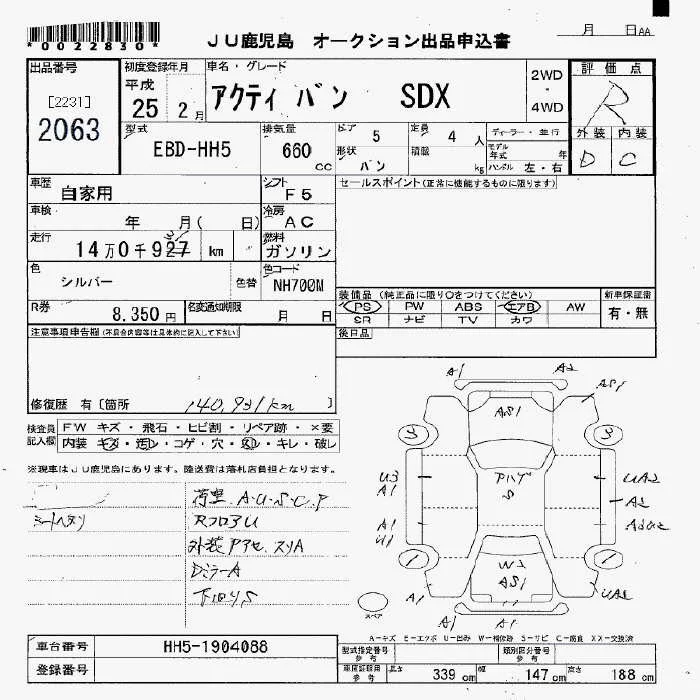 *0022830*
JU鹿児島 オークション出品申込書
月 日AA
出品番号
[2231]
2063
初度登録年月
平成
25 2月
車名・グレード
アクティ バン SDX
2WD
・
4WD
評価点
R
外装 内装
D C
型式
EBD-HH5
排気量
660 cc
ドア 5
形状 バン
定員 4 人
積載 kg
ディーラー・並行
モデル年式 年
ハンドル 左・右
車歴
自家用
シフト
F5
セールスポイント(正常に機能するものに限ります)
車検
年 月( 日)
冷房
AC
走行
14万0千927 km
31
燃料
ガソリン
色
シルバー
色替
色コード
NH700M
R券
8,350円
名変通知期限
月 日
装備品(純正品に限り○をつけてください)
PS PW ABS エアB AW
SR ナビ TV カワ
新車保証書
有・無
後日品
注意事項申告欄(不具合内容等は具体的に記入して下さい)
修復歴 有〔箇所 140,931km 〕
検査員記入欄
FW キズ・飛石・ヒビ割・リペア跡・×要
内装 キズ・汚レ・コゲ・穴・凹・キレ・破レ
※現車はJU鹿児島にあります。陸送費は落札店負担となります。
シートヘタリ
荷室 A.U.S.C.P
RフロアU
外装アセ.スリA
DミラーA
下回りS
A1 A2
AS1
AS1
3 3
アハゲ
S
U3
A1
UA2
A2
A1
U1
1 1
W2
AS1
A1 UA2
A1 A1
スペア
A-キズ E-エクボ U-凹み W-補修跡 S-サビ C-腐食 XX-交換済
車台番号
HH5-1904088
登録番号
型式指定番号
参考
類別区分番号
参考
車検証有用
参考
長さ 339 cm 幅 147 cm 高さ 188 cm